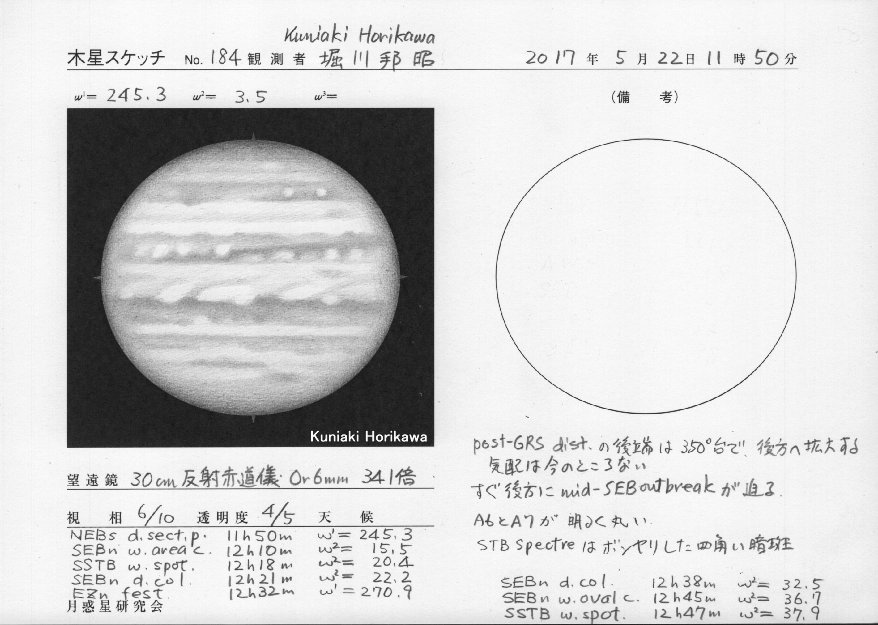 Kuniaki Horikawa
木星スケッチ No. 184 観測者 堀川邦昭 2017年5月22日11時50分
ω¹= 245.3 ω²= 3.5 ω³=
(備考)
Kuniaki Horikawa
post-GRS dist. の後端は350°台で、後方へ拡大する
気配は今のところない
すぐ後方に mid-SEB outbreak が迫る.
A6とA7が明るく丸い.
STB Spectre はボンヤリした四角い暗斑
望遠鏡 30cm 反射赤道儀 Or6mm 341倍
視相 6/10 透明度 4/5 天候
NEBs d.sect.p. 11h50m ω¹= 245.3
SEBn w.area c. 12h10m ω²= 15.5
SSTB w.spot. 12h18m ω²= 20.4
SEBn d.col. 12h21m ω²= 22.2
EZn fest. 12h32m ω¹= 270.9
月惑星研究会
SEBn d.col. 12h38m ω²= 32.5
SEBn w.oval c. 12h45m ω²= 36.7
SSTB w.spot. 12h47m ω²= 37.9